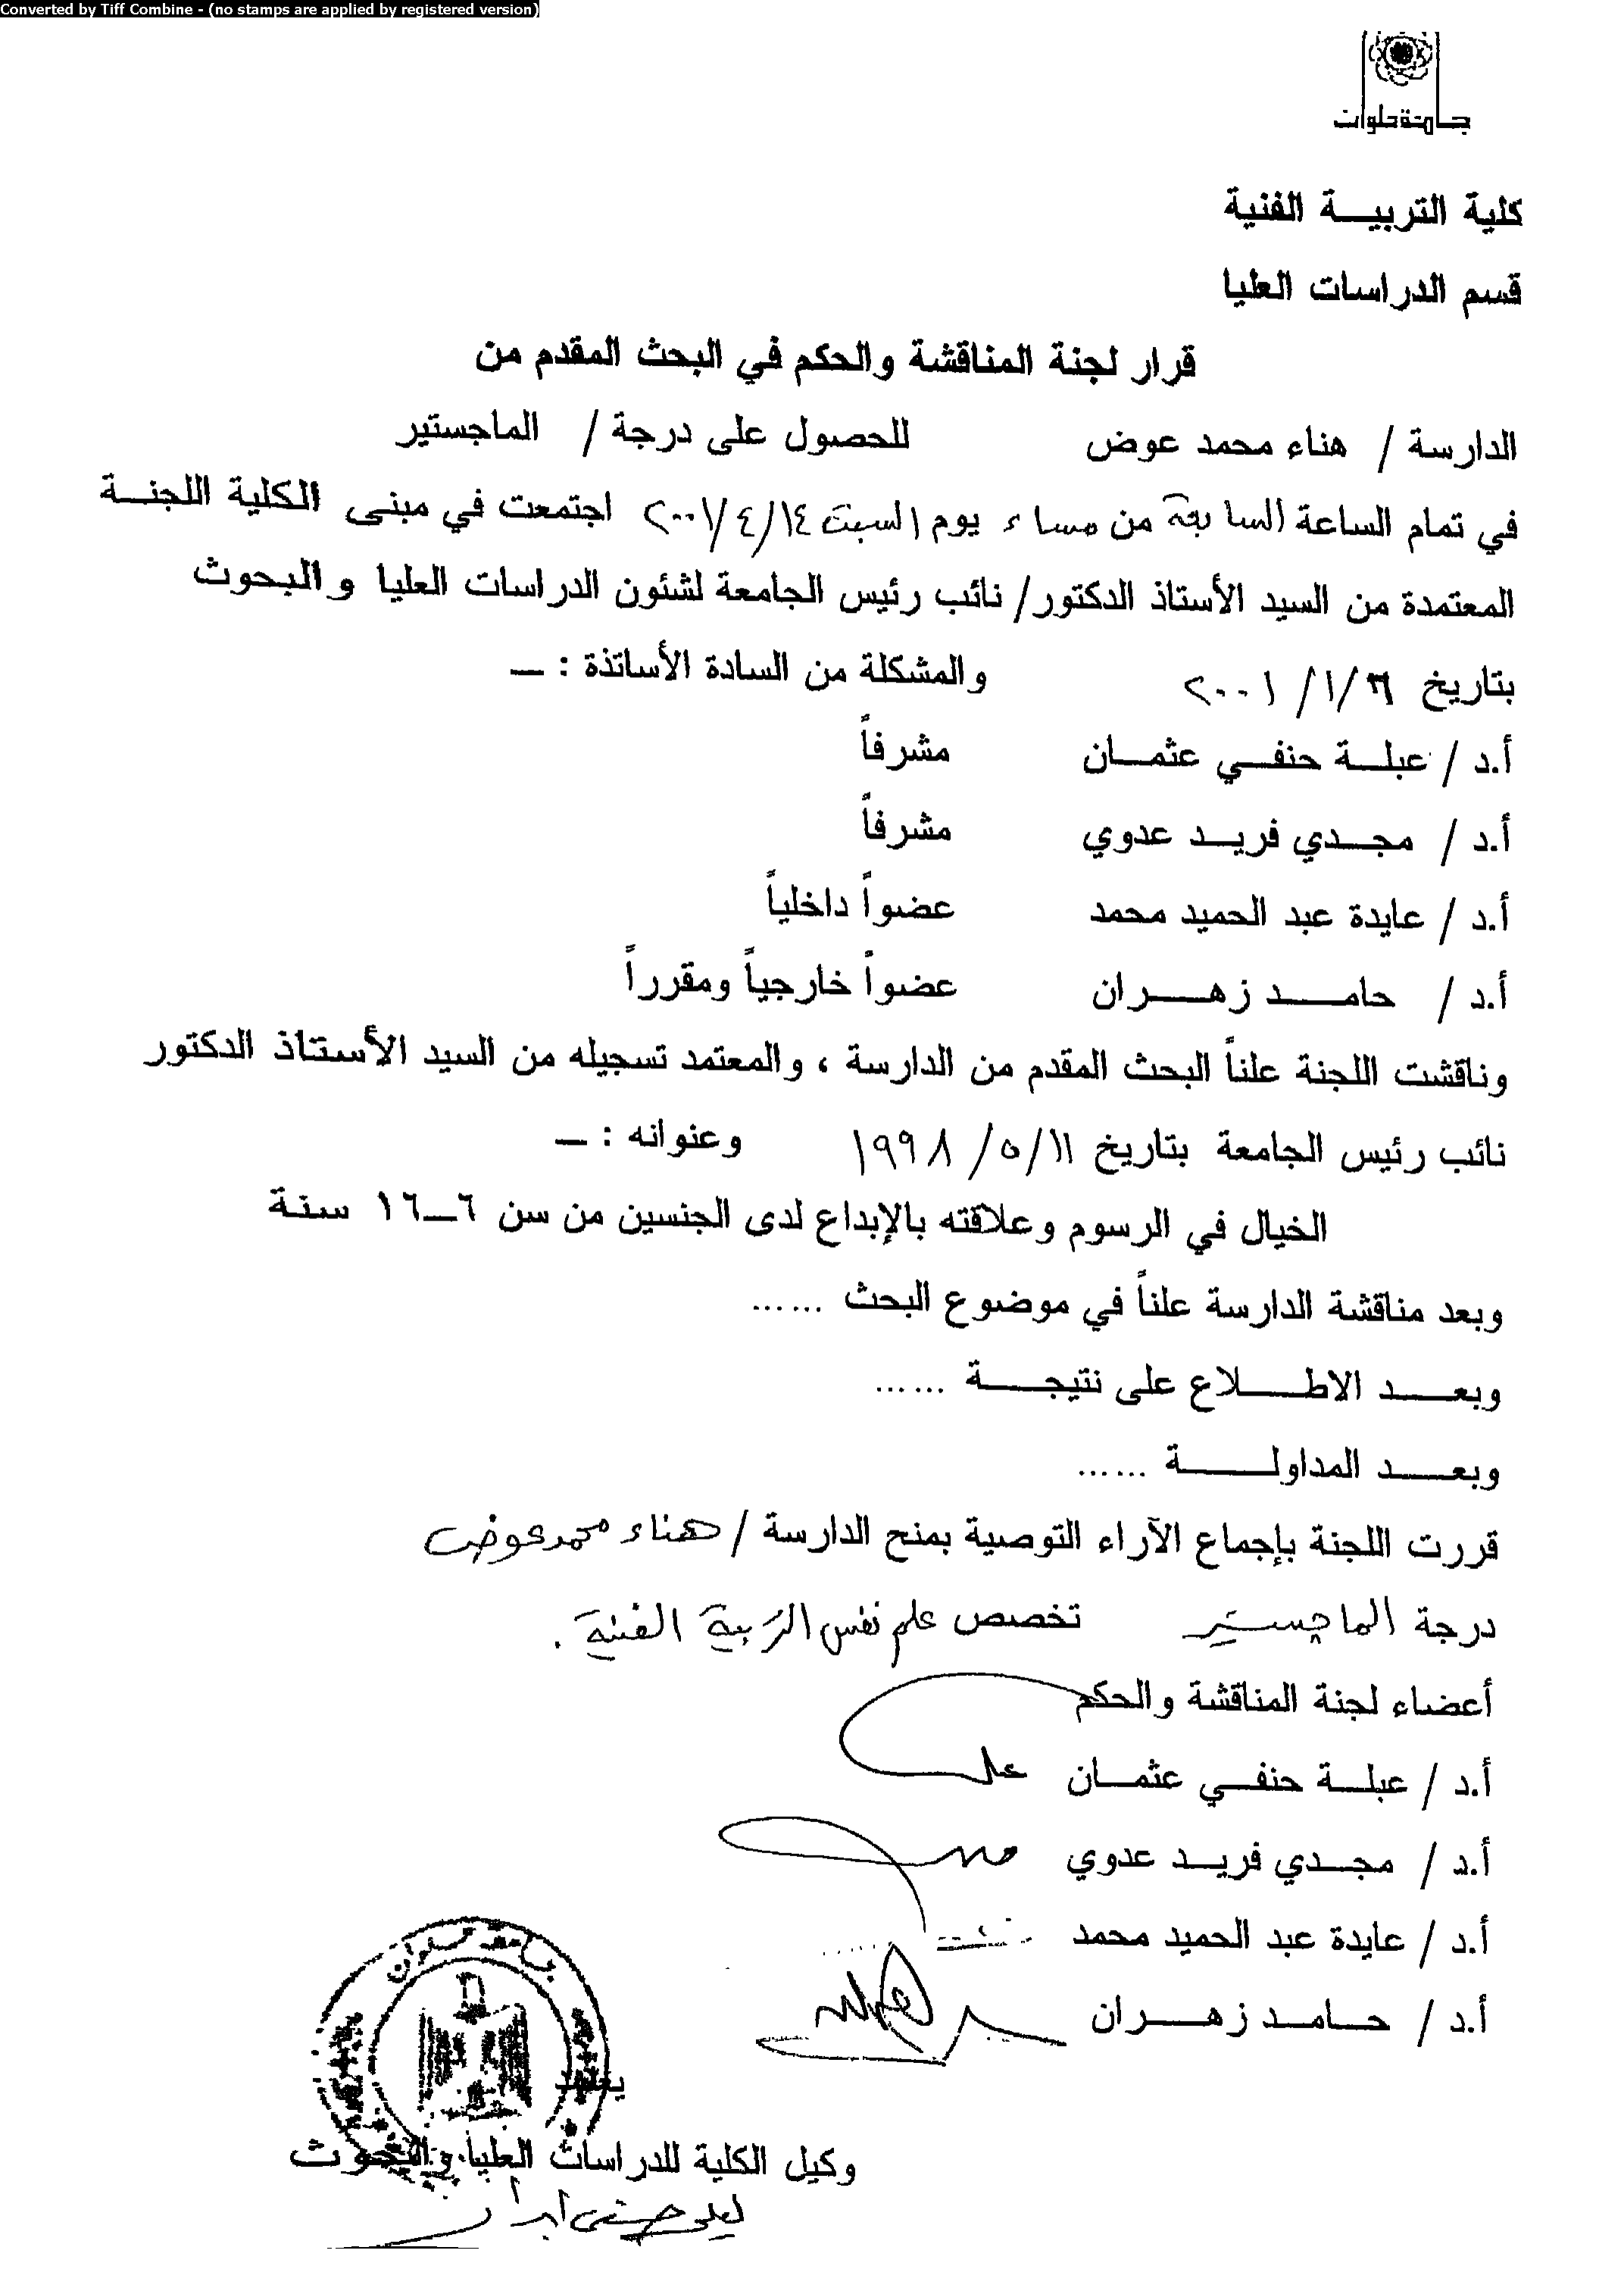 Converted by Tiff Combine - (no stamps are applied by registered version)
جامعة حلوان
كلية التربيـــة الفنية
قسم الدراسات العليا
قرار لجنة المناقشة والحكم في البحث المقدم من
الدارسة / هناء محمد عوض للحصول على درجة / الماجستير
في تمام الساعة السابعة من مساء يوم السبت ١٤/٤/٢٠٠١ اجتمعت في مبنى الكلية اللجنــة
المعتمدة من السيد الأستاذ الدكتور/ نائب رئيس الجامعة لشئون الدراسات العليا والبحوث
بتاريخ /١/٢٠٠١ والمشكلة من السادة الأساتذة : ــ
أ.د / عبلـــة حنفـــي عثمـــان مشرفاً
أ.د / مجـــدي فريـــد عدوي مشرفاً
أ.د / عايدة عبد الحميد محمد عضواً داخلياً
أ.د / حامـــد زهـــران عضواً خارجياً ومقرراً
وناقشت اللجنة علناً البحث المقدم من الدارسة ، والمعتمد تسجيله من السيد الأستاذ الدكتور
نائب رئيس الجامعة بتاريخ ١١/٥/١٩٩٨ وعنوانه : ــ
الخيال في الرسوم وعلاقته بالإبداع لدى الجنسين من سن ٦ــ١٦ سنة
وبعد مناقشة الدارسة علناً في موضوع البحث ......
وبعـــد الاطـــلاع على نتيجـــة ......
وبعـــد المداولـــة ......
قررت اللجنة بإجماع الآراء التوصية بمنح الدارسة / هناء محمد عوض
درجة الماجستير تخصص علم نفس التربية الفنية .
أعضاء لجنة المناقشة والحكم
أ.د / عبلـــة حنفـــي عثمـــان
أ.د / مجـــدي فريـــد عدوي
أ.د / عايدة عبد الحميد محمد
أ.د / حـامـد زهـــران
جامعة حلوان
يعتمد
وكيل الكلية للدراسات العليا والبحوث
ليلى حسنى